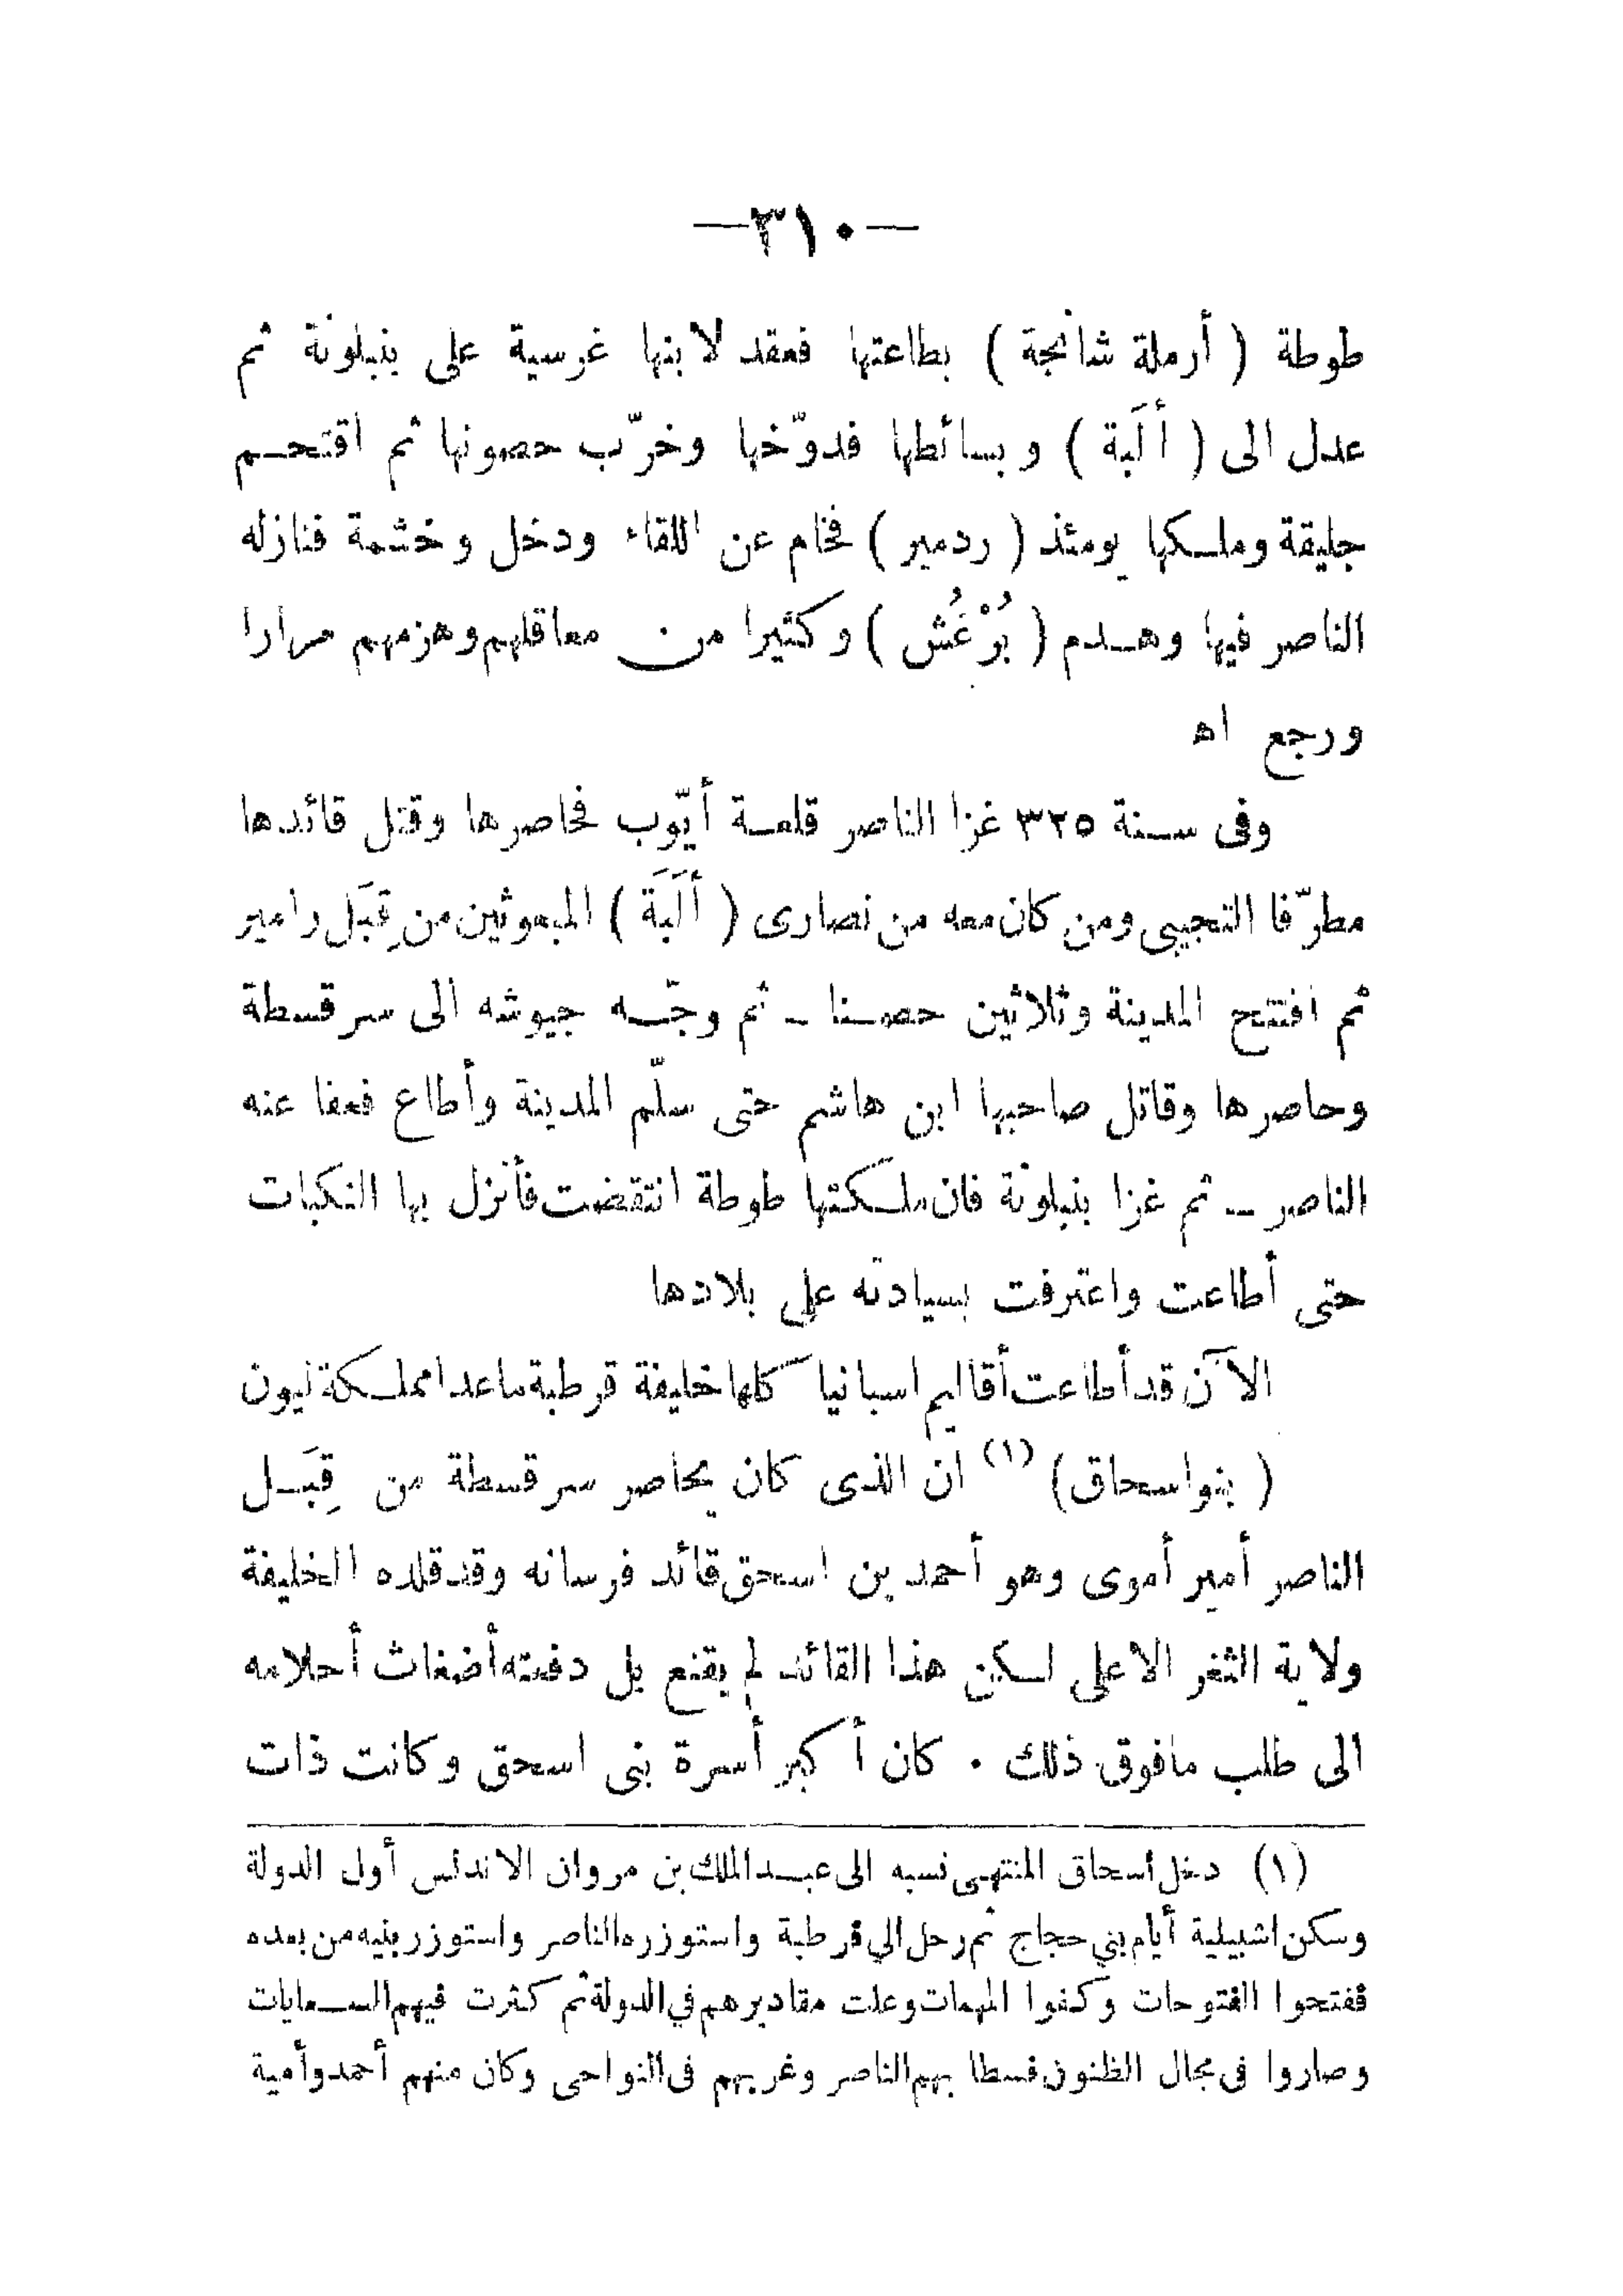 —٣١٠—
طوطة ( أرملة شانجة ) بطاعتها فعقد لابنها غرسية على بنبلونة ثم
عدل الى ( ألَبة ) وبسائطها فدوّخها وخرّب حصونها ثم اقتحم
جليقة وملكها يومئذ ( ردمير ) فخام عن اللقاء ودخل وخشمة فنازله
الناصر فيها وهدم ( بُرْغُش ) وكثيرا من معاقلهم وهزمهم مرارا
ورجع اه
وفى سنة ٣٢٥ غزا الناصر قلعة أيّوب فحاصرها وقتل قائدها
مطرّفا التجيبى ومن كان معه من نصارى ( ألَبَة ) المبعوثين من قِبَل رامير
ثم افتتح المدينة وثلاثين حصنا – ثم وجّه جيوشه الى سرقسطة
وحاصرها وقاتل صاحبها ابن هاشم حتى سلّم المدينة وأطاع فعفا عنه
الناصر – ثم غزا بنبلونة فان ملكتها طوطة انتقضت فأنزل بها النكبات
حتى أطاعت واعترفت بسيادته على بلادها
الآن قد أطاعت أقاليم اسبانيا كلها خليفة قرطبة ماعدا مملكة ليون
( بنو اسحاق ) (١) ان الذى كان يحاصر سرقسطة من قِبَل
الناصر أمير أموى وهو أحمد بن اسحق قائد فرسانه وقد قلده الخليفة
ولاية الثغر الاعلى لكن هذا القائد لم يقنع بل دفعته أضغاث أحلامه
الى طلب مافوق ذلك . كان أكبر أسرة بنى اسحق وكانت ذات
(١) دخل اسحاق المنتهى نسبه الى عبد الملك بن مروان الاندلس أول الدولة
وسكن اشبيلية أيام بني حجاج ثم رحل الي قرطبة واستوزره الناصر واستوزر بنيه من بعده
ففتحوا الفتوحات وكفوا المهمات وعلت مقاديرهم في الدولة ثم كثرت فيهم السعايات
وصاروا فى مجال الظنون فسطا بهم الناصر وغربهم فى النواحى وكان منهم أحمد وأمية